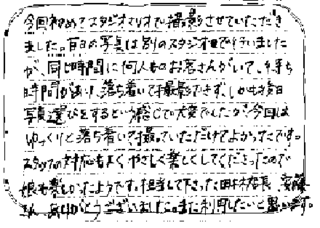 今回初めてスタジオマリオで撮影させていただき
ました。百日の写真は別のスタジオ で行いました
が、同じ時間に何人ものお客さんがいて、待ち
時間が長い、落ち着いて撮影できず、しかも後日
写真選びをするという感じで大変でしたが今回は
ゆっくりと落ち着いて撮っていただけてよかったです。
スタッフの対応もよく、やさしく楽しくしてくださったので
娘も楽しかったようです。担当して下さった田村店長、安藤
さん、ありがとうございました。また利用したいと思います。